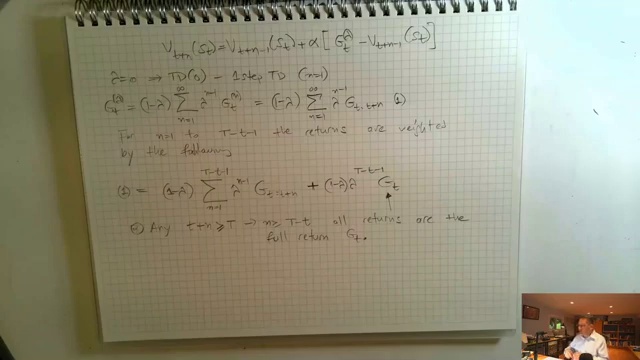 V_{t+n}(S_t) = V_{t+n-1}(S_t) + α [ G_t^{(λ)} - V_{t+n-1}(S_t) ]
λ=0 ⇒ TD(0) - 1 step TD (n=1)
G_t^{(λ)} = (1-λ) ∑_{n=1}^{∞} λ^{n-1} G_t^{(n)} = (1-λ) ∑_{n=1}^{∞} λ^{n-1} G_{t,t+n} (1)
For n=1 to T-t-1 the returns are weighted
by the following
(1) = (1-λ) ∑_{n=1}^{T-t-1} λ^{n-1} G_{t,t+n} + (1-λ) λ^{T-t-1} G_t
Any t+n ≥ T → n ≥ T-t all returns are the
full return G_t.